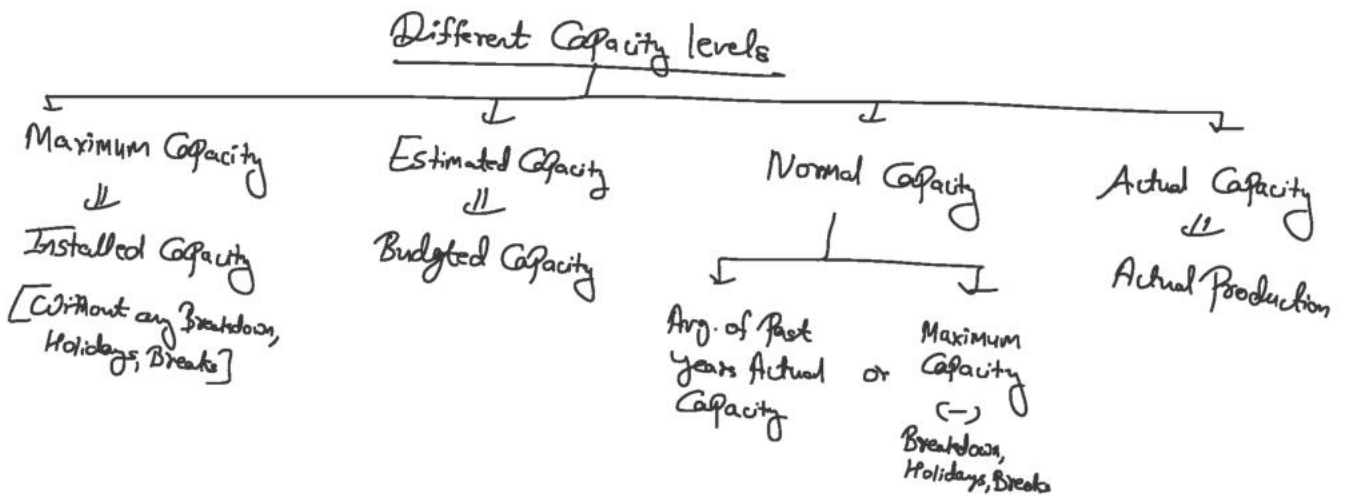 Different Capacity levels
Maximum Capacity
Installed Capacity
[Without any Breakdown,
Holidays, Breaks]
Estimated Capacity
Budgted Capacity
Normal Capacity
Avg. of Past
years Actual
Capacity
or
Maximum
Capacity
(-)
Breakdown,
Holidays, Breaks
Actual Capacity
Actual Production